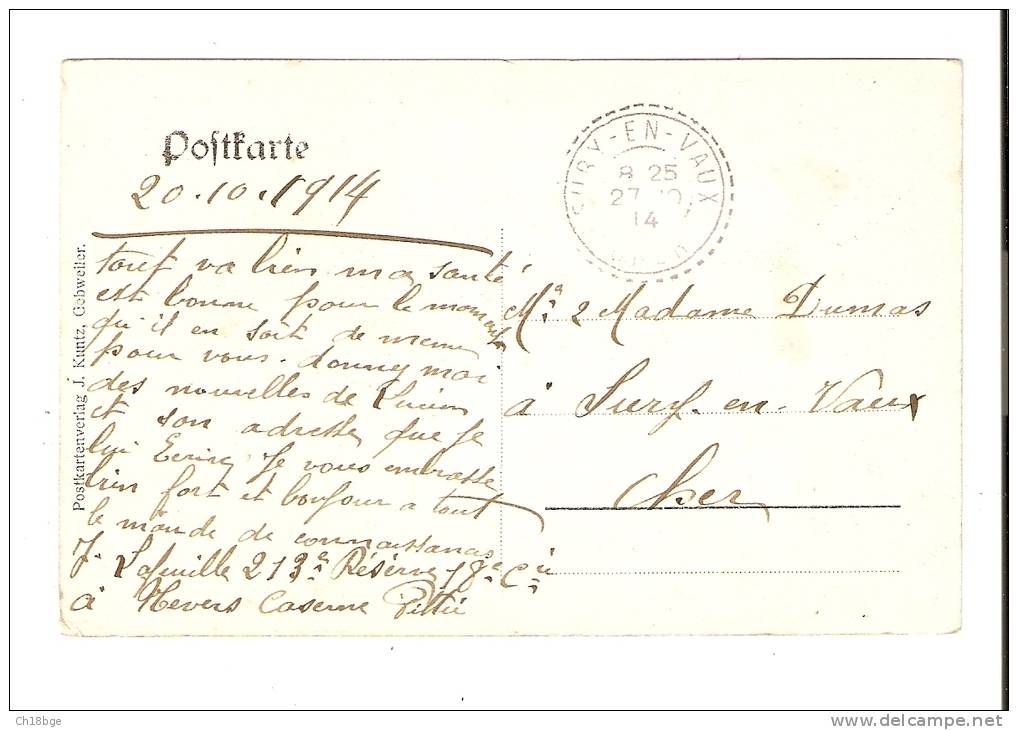 Postkarte
20.10.1914
tout va bien ma santé
est bonne pour le moment
qu'il en soit de meme
pour vous. donnez moi
des nouvelles de Lucien
et son adresse que je
lui Ecrire je vous embrasse
bien fort et bonjour a tout
le monde de connaissances
J. 213e Réserve 18e Cie
à Nevers Caserne Pittié
Postkartenverlag J. Kuntz, Gebweiler.
SURY-EN-VAUX
8 25
27 10
14
Mr & Madame Dumas
à Sury-en-Vaux
Cher
Ch18bge
http://www.delcampe.net